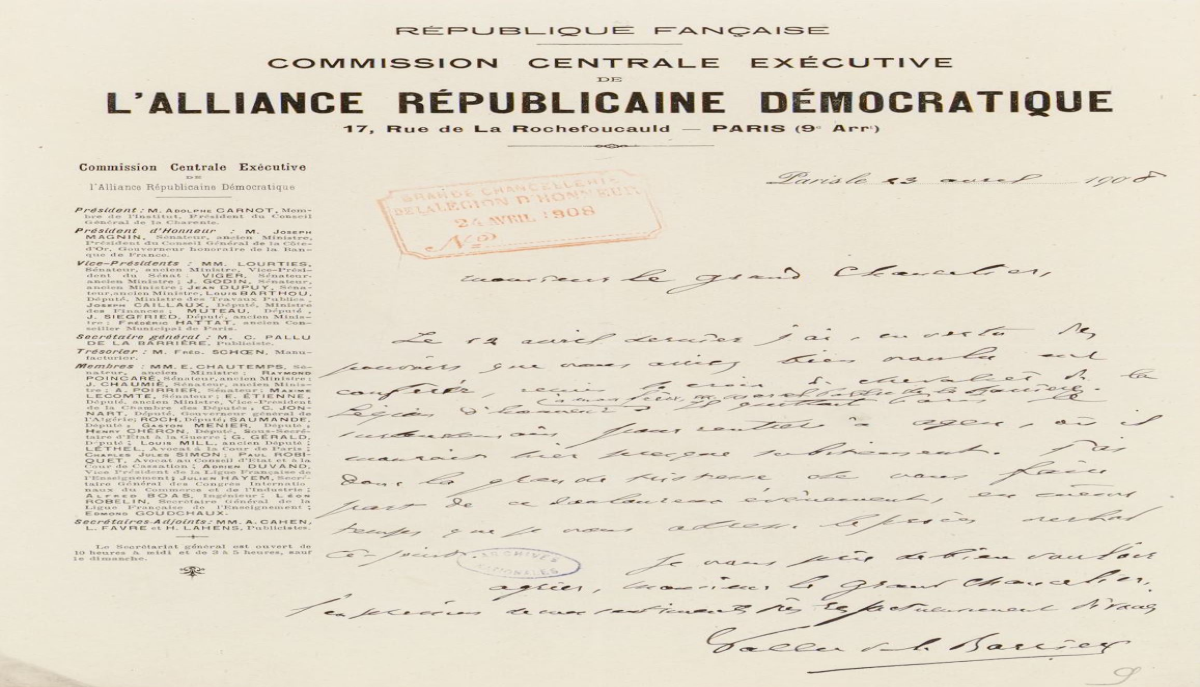 RÉPUBLIQUE FANÇAISE
COMMISSION CENTRALE EXÉCUTIVE
DE
L'ALLIANCE RÉPUBLICAINE DÉMOCRATIQUE
17, Rue de La Rochefoucauld — PARIS (9e Arrt)
Commission Centrale Exécutive
DE
l'Alliance Républicaine Démocratique
Président : M. ADOLPHE CARNOT, Mem-
bre de l'Institut, Président du Conseil
Général de la Charente.
Président d'Honneur : M. JOSEPH
MAGNIN, Sénateur, ancien Ministre,
Président du Conseil Général de la Côte-
d'Or, Gouverneur honoraire de la Ban-
que de France.
Vice-Présidents : MM. LOURTIES,
Sénateur, ancien Ministre, Vice-Prési-
dent du Sénat; VIGER, Sénateur,
ancien Ministre; J. GODIN, Sénateur,
ancien Ministre; JEAN DUPUY, Séna-
teur, ancien Ministre, LOUIS BARTHOU,
Député, Ministre des Travaux Publics,
JOSEPH CAILLAUX, Député, Ministre
des Finances; MUTEAU, Député,
J. SIEGFRIED, Député, ancien Minis-
tre; FRÉDÉRIC HATTAT, ancien Con-
seiller Municipal de Paris.
Secrétaire général : M. C. PALLU
DE LA BARRIÈRE, Publiciste.
Trésorier : M. FRÉD. SCHŒN, Manu-
facturier.
Membres : MM. E. CHAUTEMPS, Sé-
nateur, ancien Ministre; RAYMOND
POINCARÉ, Sénateur, ancien Ministre;
J. CHAUMIÉ, Sénateur, ancien Minis-
tre; A. POIRRIER, Sénateur; MAXIME
LECOMTE, Sénateur; E. ÉTIENNE,
Député, ancien Ministre, Vice-Président
de la Chambre des Députés, C. JON-
NART, Député, Gouverneur général de
l'Algérie; ROCH, Député, SAUMANDE,
Député; GASTON MENIER, Député;
HENRY CHÉRON, Député, Sous-Secré-
taire d'État à la Guerre; G. GÉRALD,
Député; LOUIS MILL, ancien Député;
LÉTHEL, Avocat à la Cour de Paris;
CHARLES JULES SIMON, PAUL ROBI-
QUET, Avocat au Conseil d'État et à la
Cour de Cassation; ADRIEN DUVAND,
Vice Président de la Ligue Française de
l'Enseignement; JULIEN HAYEM, Secré-
taire Général des Congrès Internatio-
naux du Commerce et de l'Industrie;
ALFRED BOAS, Ingénieur; LÉON
ROBELIN, Secrétaire Général de la
Ligue Française de l'Enseignement;
EDMOND GOUDCHAUX.
Secrétaires-Adjoints : MM. A. CAHEN,
L. FAVRE et H. LAHENS, Publicistes.
Le Secrétariat général est ouvert de
10 heures à midi et de 2 à 5 heures, sauf
le dimanche.
GRANDE CHANCELLERIE
DE LA LÉGION D'HONNEUR
24 AVRIL 1908
No
Paris le 23 avril 1908
Monsieur le grand Chancelier,
Le 12 avril dernier j'ai en vertu des
pouvoirs que vous aviez bien voulu me
conférer remis de chevalier de la
Légion d'honneur
à Agen, où il
mourait hier
dans la de vous faire
part de ce douloureux événement en même
temps que je vous adresse le procès verbal
ci-joint.
Je vous prie de bien vouloir
agréer, Monsieur le grand Chancelier,
l'expression de mes sentiments très respectueusement dévoués
Pallu de la Barrière
ARCHIVES
NATIONALES
9